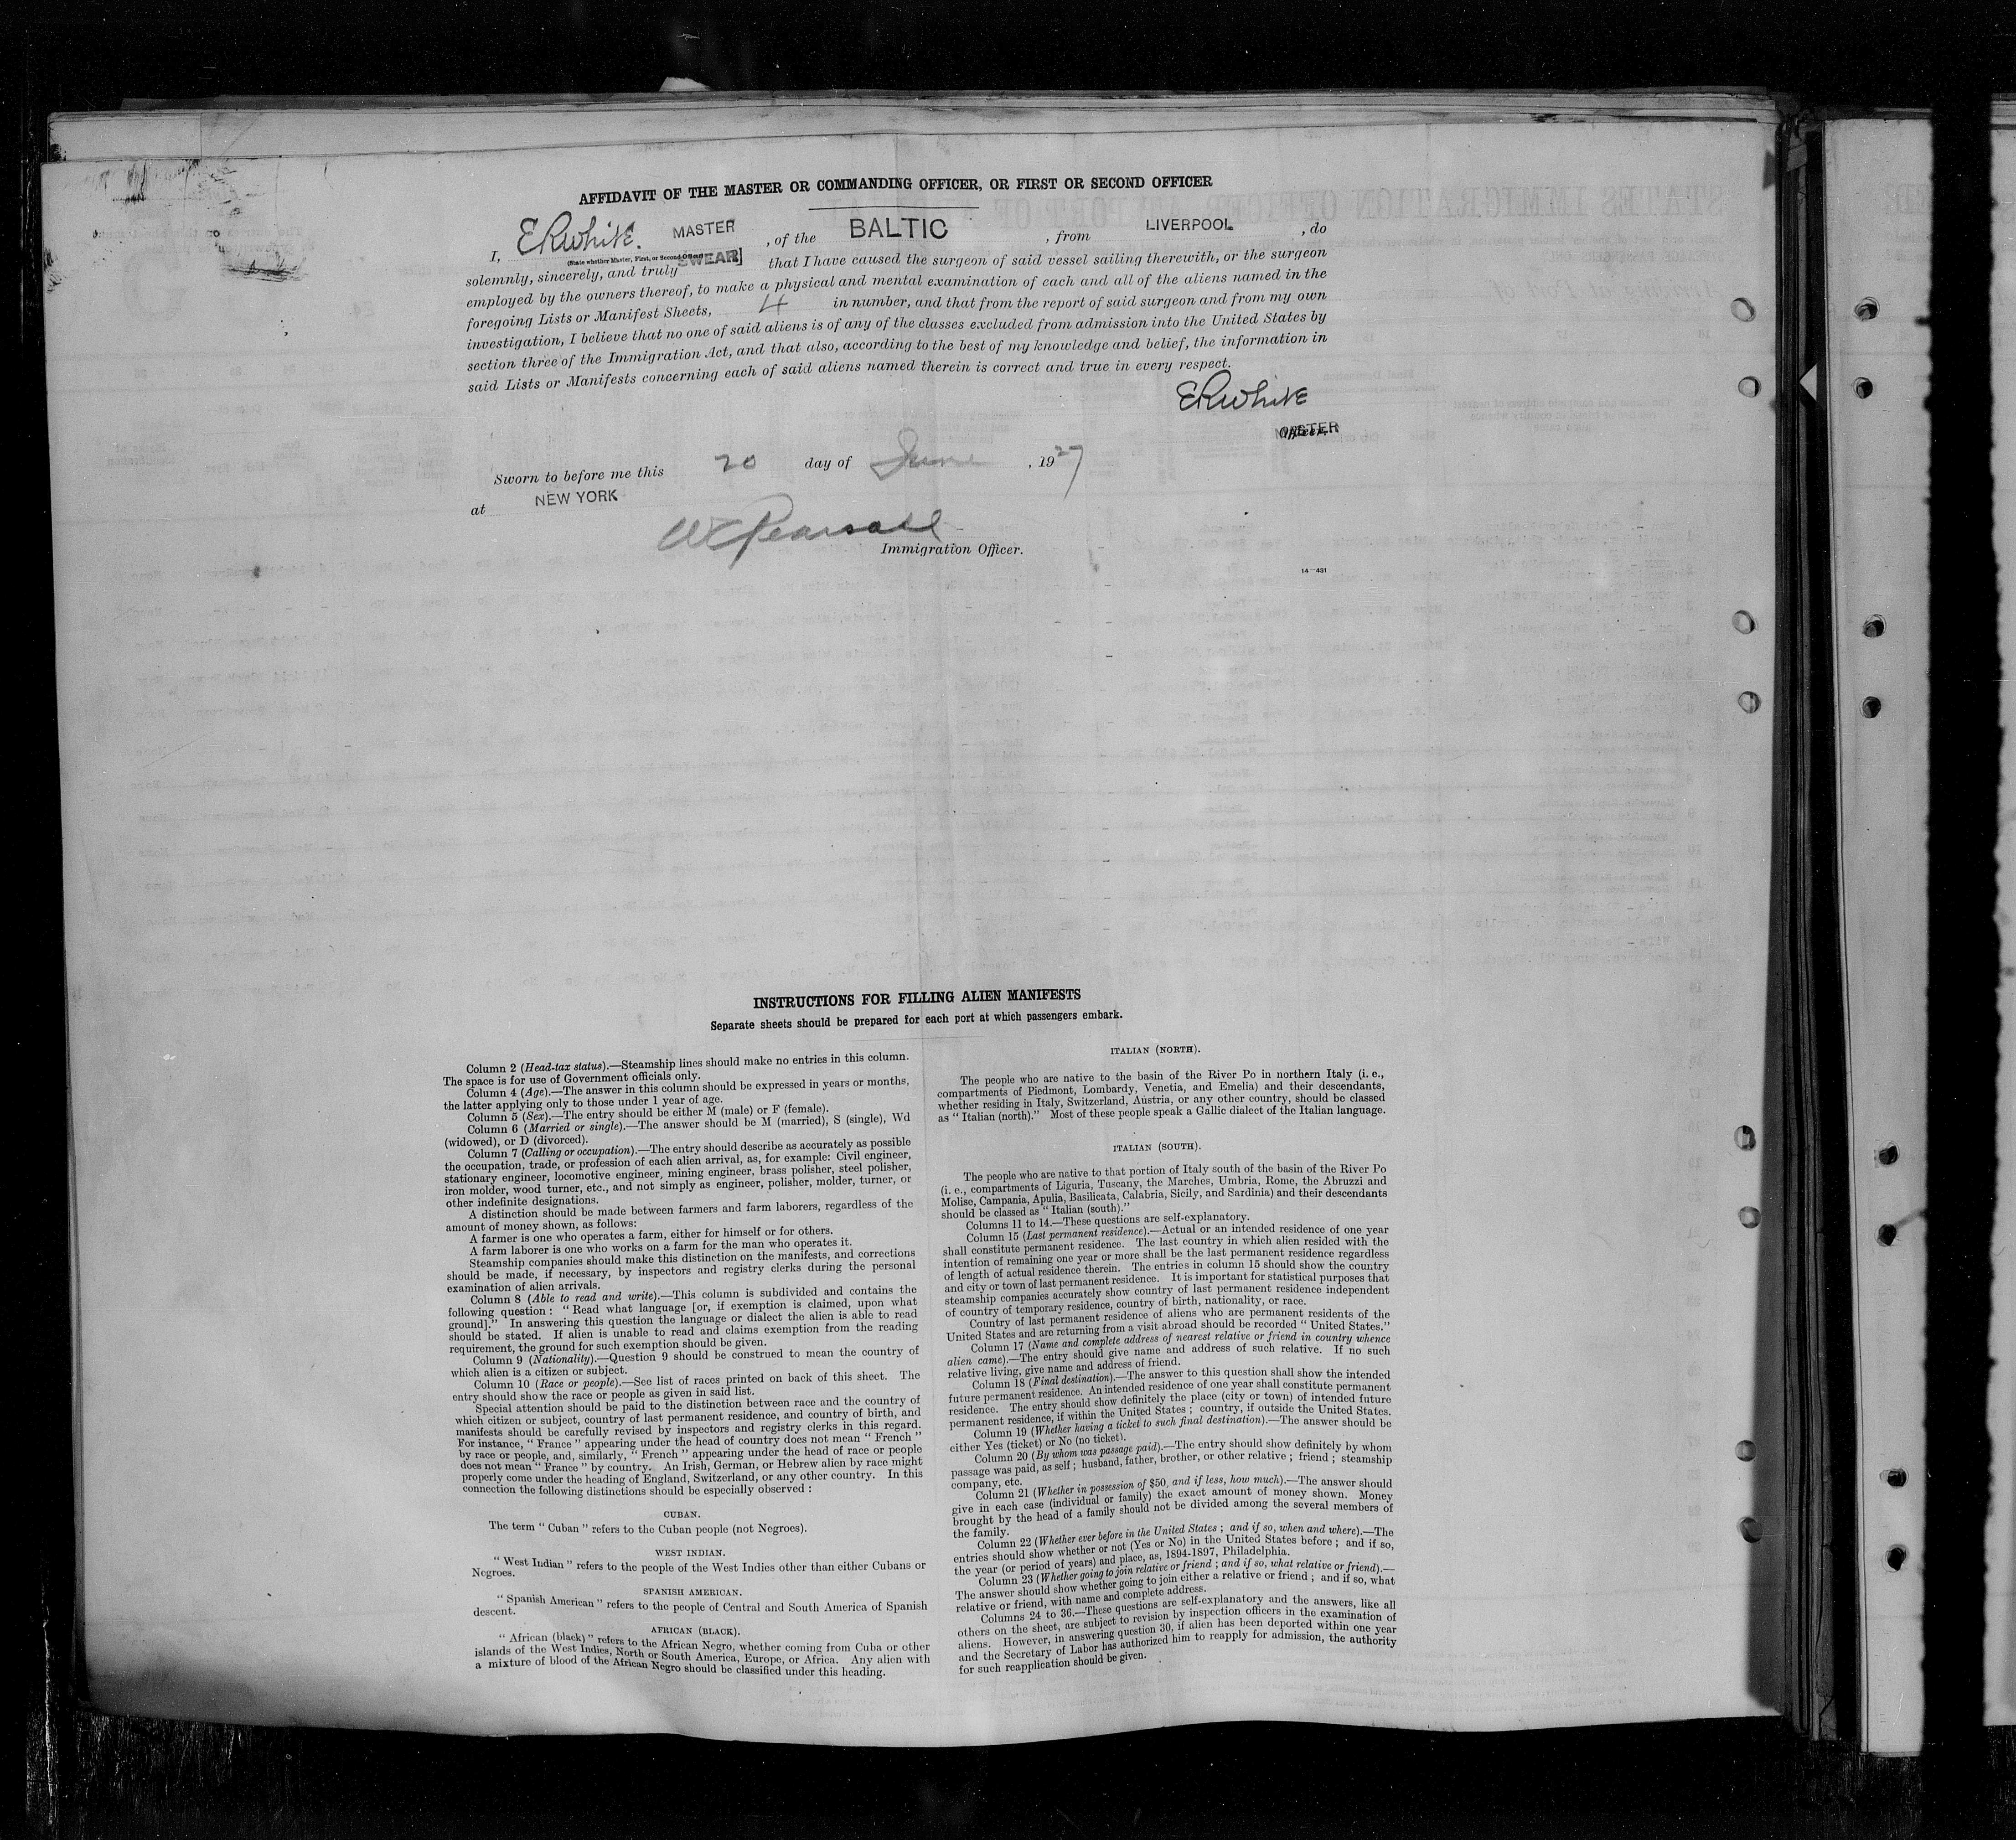 AFFIDAVIT OF THE MASTER OR COMMANDING OFFICER, OR FIRST OR SECOND OFFICER
I, ERWhite. MASTER , of the BALTIC , from LIVERPOOL , do
(State whether Master, First, or Second Officer)
solemnly, sincerely, and truly SWEAR] that I have caused the surgeon of said vessel sailing therewith, or the surgeon
employed by the owners thereof, to make a physical and mental examination of each and all of the aliens named in the
foregoing Lists or Manifest Sheets, 4 in number, and that from the report of said surgeon and from my own
investigation, I believe that no one of said aliens is of any of the classes excluded from admission into the United States by
section three of the Immigration Act, and that also, according to the best of my knowledge and belief, the information in
said Lists or Manifests concerning each of said aliens named therein is correct and true in every respect.
ERWhite
MASTER
Officer.
Sworn to before me this 20 day of June , 1927
at NEW YORK
WC Pearsall
Immigration Officer.
14—431
INSTRUCTIONS FOR FILLING ALIEN MANIFESTS
Separate sheets should be prepared for each port at which passengers embark.
Column 2 (Head-tax status).—Steamship lines should make no entries in this column.
The space is for use of Government officials only.
Column 4 (Age).—The answer in this column should be expressed in years or months,
the latter applying only to those under 1 year of age.
Column 5 (Sex).—The entry should be either M (male) or F (female).
Column 6 (Married or single).—The answer should be M (married), S (single), Wd
(widowed), or D (divorced).
Column 7 (Calling or occupation).—The entry should describe as accurately as possible
the occupation, trade, or profession of each alien arrival, as, for example: Civil engineer,
stationary engineer, locomotive engineer, mining engineer, brass polisher, steel polisher,
iron molder, wood turner, etc., and not simply as engineer, polisher, molder, turner, or
other indefinite designations.
A distinction should be made between farmers and farm laborers, regardless of the
amount of money shown, as follows:
A farmer is one who operates a farm, either for himself or for others.
A farm laborer is one who works on a farm for the man who operates it.
Steamship companies should make this distinction on the manifests, and corrections
should be made, if necessary, by inspectors and registry clerks during the personal
examination of alien arrivals.
Column 8 (Able to read and write).—This column is subdivided and contains the
following question : “ Read what language [or, if exemption is claimed, upon what
ground].” In answering this question the language or dialect the alien is able to read
should be stated. If alien is unable to read and claims exemption from the reading
requirement, the ground for such exemption should be given.
Column 9 (Nationality).—Question 9 should be construed to mean the country of
which alien is a citizen or subject.
Column 10 (Race or people).—See list of races printed on back of this sheet. The
entry should show the race or people as given in said list.
Special attention should be paid to the distinction between race and the country of
which citizen or subject, country of last permanent residence, and country of birth, and
manifests should be carefully revised by inspectors and registry clerks in this regard.
For instance, “ France ” appearing under the head of country does not mean “ French ”
by race or people, and, similarly, “ French ” appearing under the head of race or people
does not mean “ France ” by country. An Irish, German, or Hebrew alien by race might
properly come under the heading of England, Switzerland, or any other country. In this
connection the following distinctions should be especially observed :
CUBAN.
The term “ Cuban ” refers to the Cuban people (not Negroes).
WEST INDIAN.
“ West Indian ” refers to the people of the West Indies other than either Cubans or
Negroes.
SPANISH AMERICAN.
“ Spanish American ” refers to the people of Central and South America of Spanish
descent.
AFRICAN (BLACK).
“ African (black) ” refers to the African Negro, whether coming from Cuba or other
islands of the West Indies, North or South America, Europe, or Africa. Any alien with
a mixture of blood of the African Negro should be classified under this heading.
ITALIAN (NORTH).
The people who are native to the basin of the River Po in northern Italy (i. e.,
compartments of Piedmont, Lombardy, Venetia, and Emelia) and their descendants,
whether residing in Italy, Switzerland, Austria, or any other country, should be classed
as “ Italian (north).” Most of these people speak a Gallic dialect of the Italian language.
ITALIAN (SOUTH).
The people who are native to that portion of Italy south of the basin of the River Po
(i. e., compartments of Liguria, Tuscany, the Marches, Umbria, Rome, the Abruzzi and
Molise, Campania, Apulia, Basilicata, Calabria, Sicily, and Sardinia) and their descendants
should be classed as “ Italian (south).”
Columns 11 to 14.—These questions are self-explanatory.
Column 15 (Last permanent residence).—Actual or an intended residence of one year
shall constitute permanent residence. The last country in which alien resided with the
intention of remaining one year or more shall be the last permanent residence regardless
of length of actual residence therein. The entries in column 15 should show the country
and city or town of last permanent residence. It is important for statistical purposes that
steamship companies accurately show country of last permanent residence independent
of country of temporary residence, country of birth, nationality, or race.
Country of last permanent residence of aliens who are permanent residents of the
United States and are returning from a visit abroad should be recorded “ United States.”
Column 17 (Name and complete address of nearest relative or friend in country whence
alien came).—The entry should give name and address of such relative. If no such
relative living, give name and address of friend.
Column 18 (Final destination).—The answer to this question shall show the intended
future permanent residence. An intended residence of one year shall constitute permanent
residence. The entry should show definitely the place (city or town) of intended future
permanent residence, if within the United States ; country, if outside the United States.
Column 19 (Whether having a ticket to such final destination).—The answer should be
either Yes (ticket) or No (no ticket).
Column 20 (By whom was passage paid).—The entry should show definitely by whom
passage was paid, as self ; husband, father, brother, or other relative ; friend ; steamship
company, etc.
Column 21 (Whether in possession of $50, and if less, how much).—The answer should
give in each case (individual or family) the exact amount of money shown. Money
brought by the head of a family should not be divided among the several members of
the family.
Column 22 (Whether ever before in the United States ; and if so, when and where).—The
entries should show whether or not (Yes or No) in the United States before ; and if so,
the year (or period of years) and place, as, 1894-1897, Philadelphia.
Column 23 (Whether going to join relative or friend ; and if so, what relative or friend).—
The answer should show whether going to join either a relative or friend ; and if so, what
relative or friend, with name and complete address.
Columns 24 to 36.—These questions are self-explanatory and the answers, like all
others on the sheet, are subject to revision by inspection officers in the examination of
aliens. However, in answering question 30, if alien has been deported within one year
and the Secretary of Labor has authorized him to reapply for admission, the authority
for such reapplication should be given.